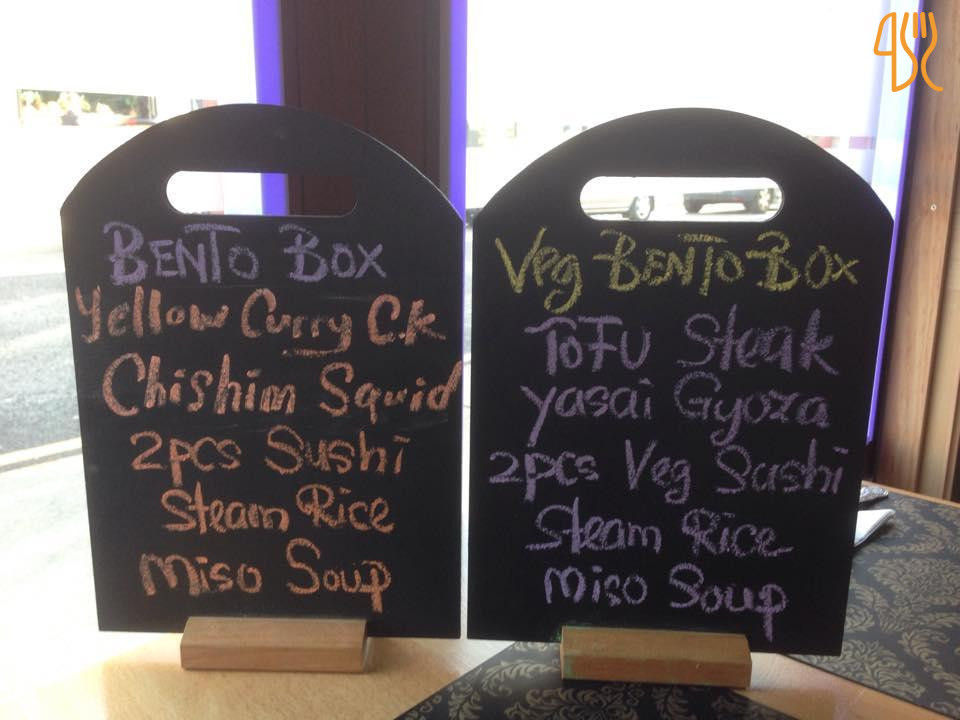 BENTO BOX
Yellow Curry C.K
Chishim Squid
2pcs Sushi
Steam Rice
Miso Soup
Veg BENTO BOX
TOFU Steak
yasai Gyoza
2pcs Veg Sushi
Steam Rice
Miso Soup